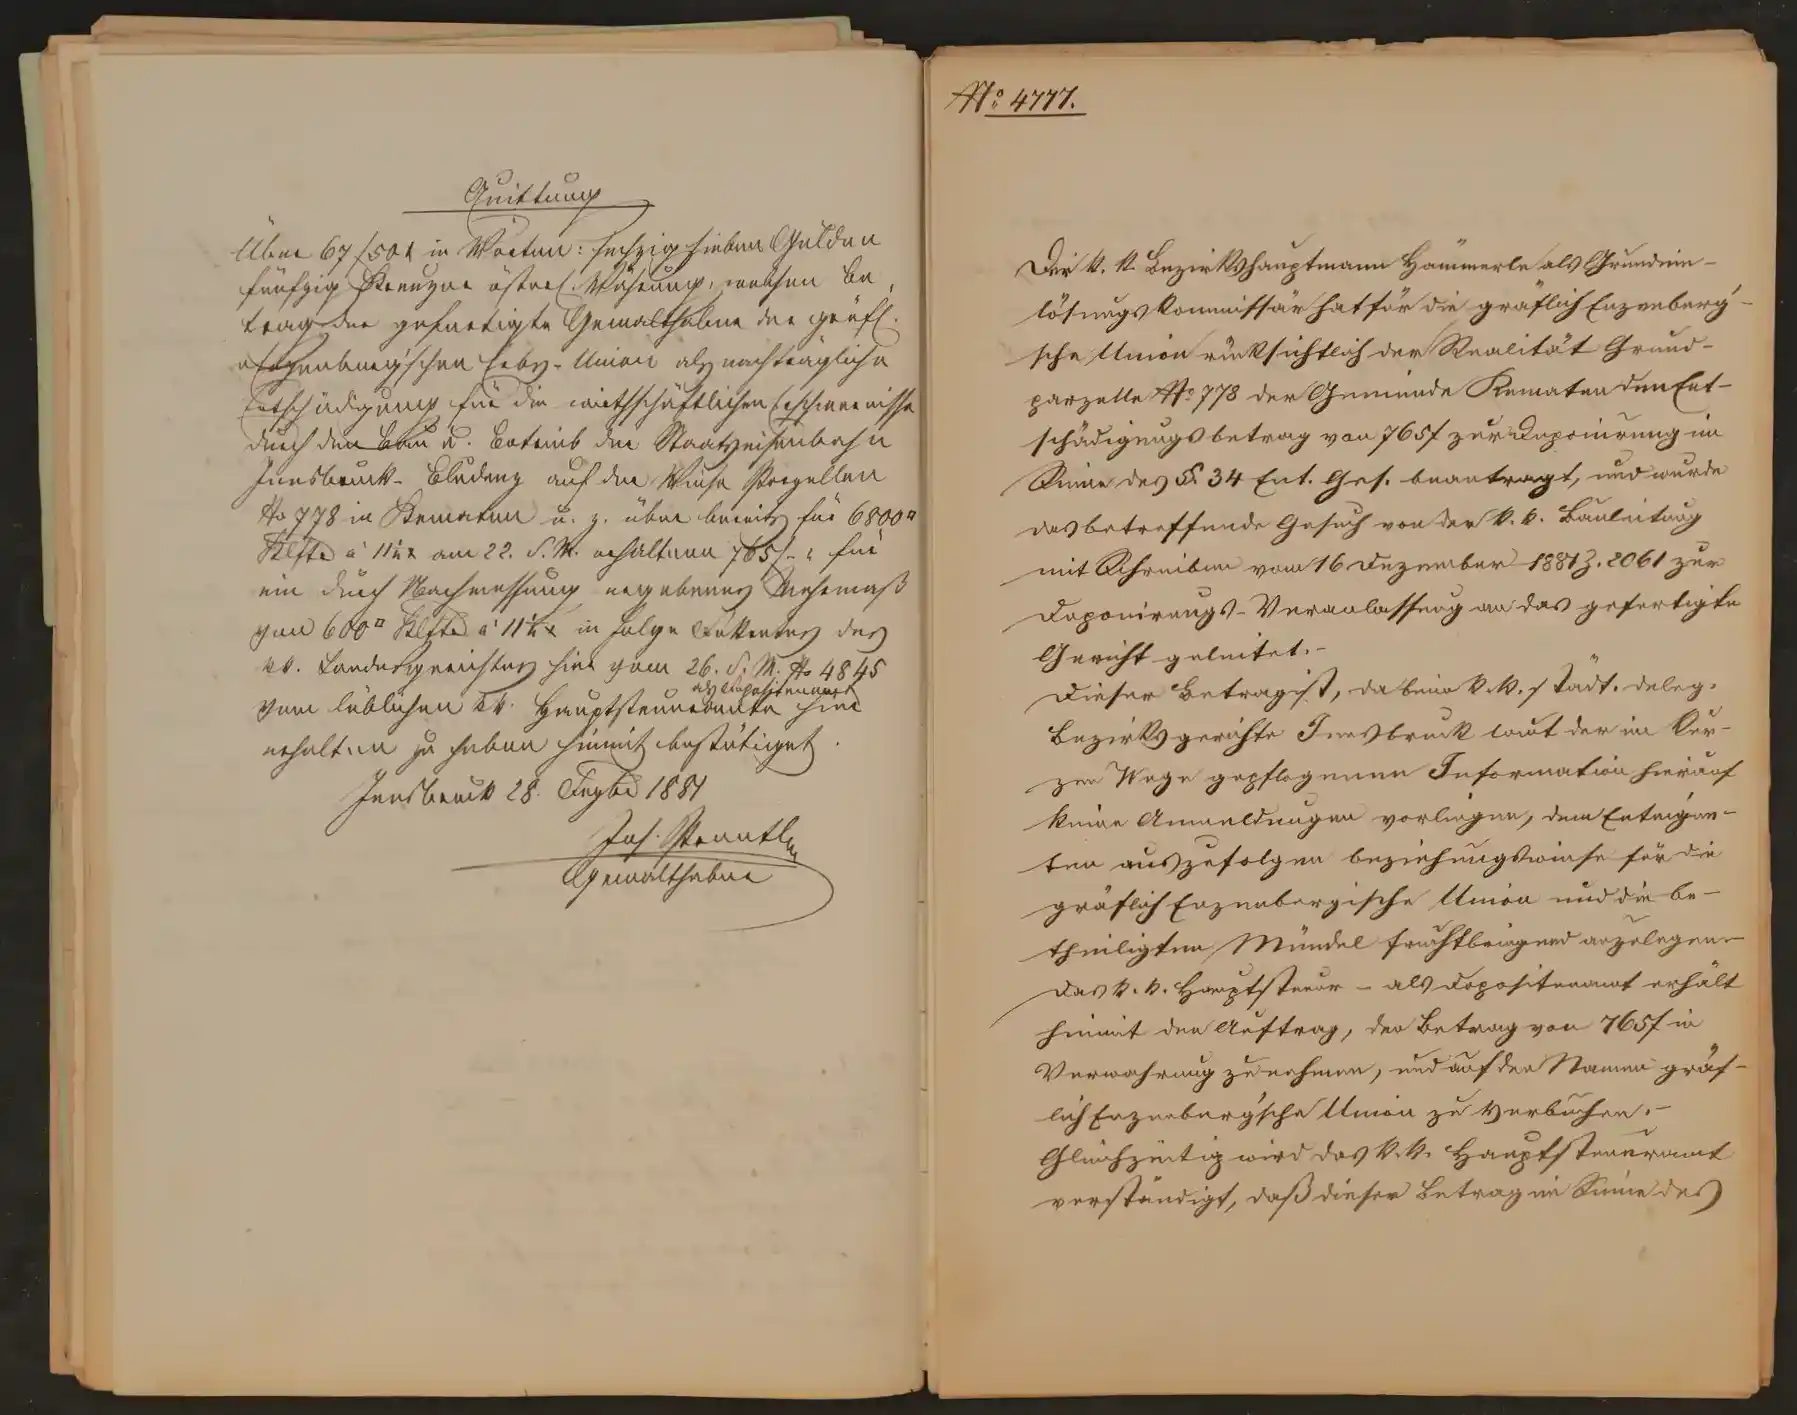 Quittung
Über 67 f 50 x in Worten: sechzig sieben Gulden
fünfzig Kreuzer österr. Währung, welchen Be-
trag der gefertigte Gewalthaber der gräfl.
Enzenberg'schen Union als nachträgliche
Entschädigung für die wirthschäftlichen Erschwernisse
durch den Bau u. Betrieb der Staatseisenbahn
Innsbruck-Bludenz auf der Wiese Parzellen
No 778 in Kematen u. z. über bereits für 6800□
Klftr à 11¼ x am 22. d. M. erhaltenen 765 f - für
ein durch Nachmessung ergebenes Mehrmaß
von 600□ Klftr à 11¼ x in Folge Dekretes des
kk. Landesgerichtes hier vom 26. d. M. No 4845
als Depositenamt
vom löblichen kk. Hauptsteueramte hier
erhalten zu haben hiemit bestätiget.
Innsbruck 28. Dezbr 1881
Jos. Prantl
Gewalthaber
No 4777.
Der k. k. Bezirkshauptmann Hämmerle als Grundein-
lösungskommissär hat für die gräflich Enzenberg'-
sche Union rücksichtlich der Realität Grund-
parzelle No 778 der Gemeinde Kematen den Ent-
schädigungsbetrag von 765 f zur Deponirung im
Sinne des §. 34 Ent. Ges. beantragt, und wurde
das betreffende Gesuch von der k. k. Bauleitung
mit Schreiben vom 16 Dezember 1881 Z. 2061 zur
Deponirungs-Veranlassung an das gefertigte
Gericht geleitet.-
Dieser Betrag ist, da beim k. k. städt. deleg.
Bezirksgerichte Innsbruck laut der im Kur-
zen Wege gepflogenen Information hierauf
keine Anmeldungen vorliegen, dem Enteigne-
ten auszufolgen beziehungsweise für die
gräflich Enzenbergische Union und die be-
theiligten Mündel fruchtbringend anzulegen.-
Das k. k. Hauptsteuer- als Depositenamt erhält
hiemit den Auftrag, den Betrag von 765 f in
Verwahrung zu nehmen, und auf den Namen gräf-
lich Enzenberg'sche Union zu verbuchen.-
Gleichzeitig wird das k. k. Hauptsteueramt
verständigt, daß dieser Betrag im Sinne des